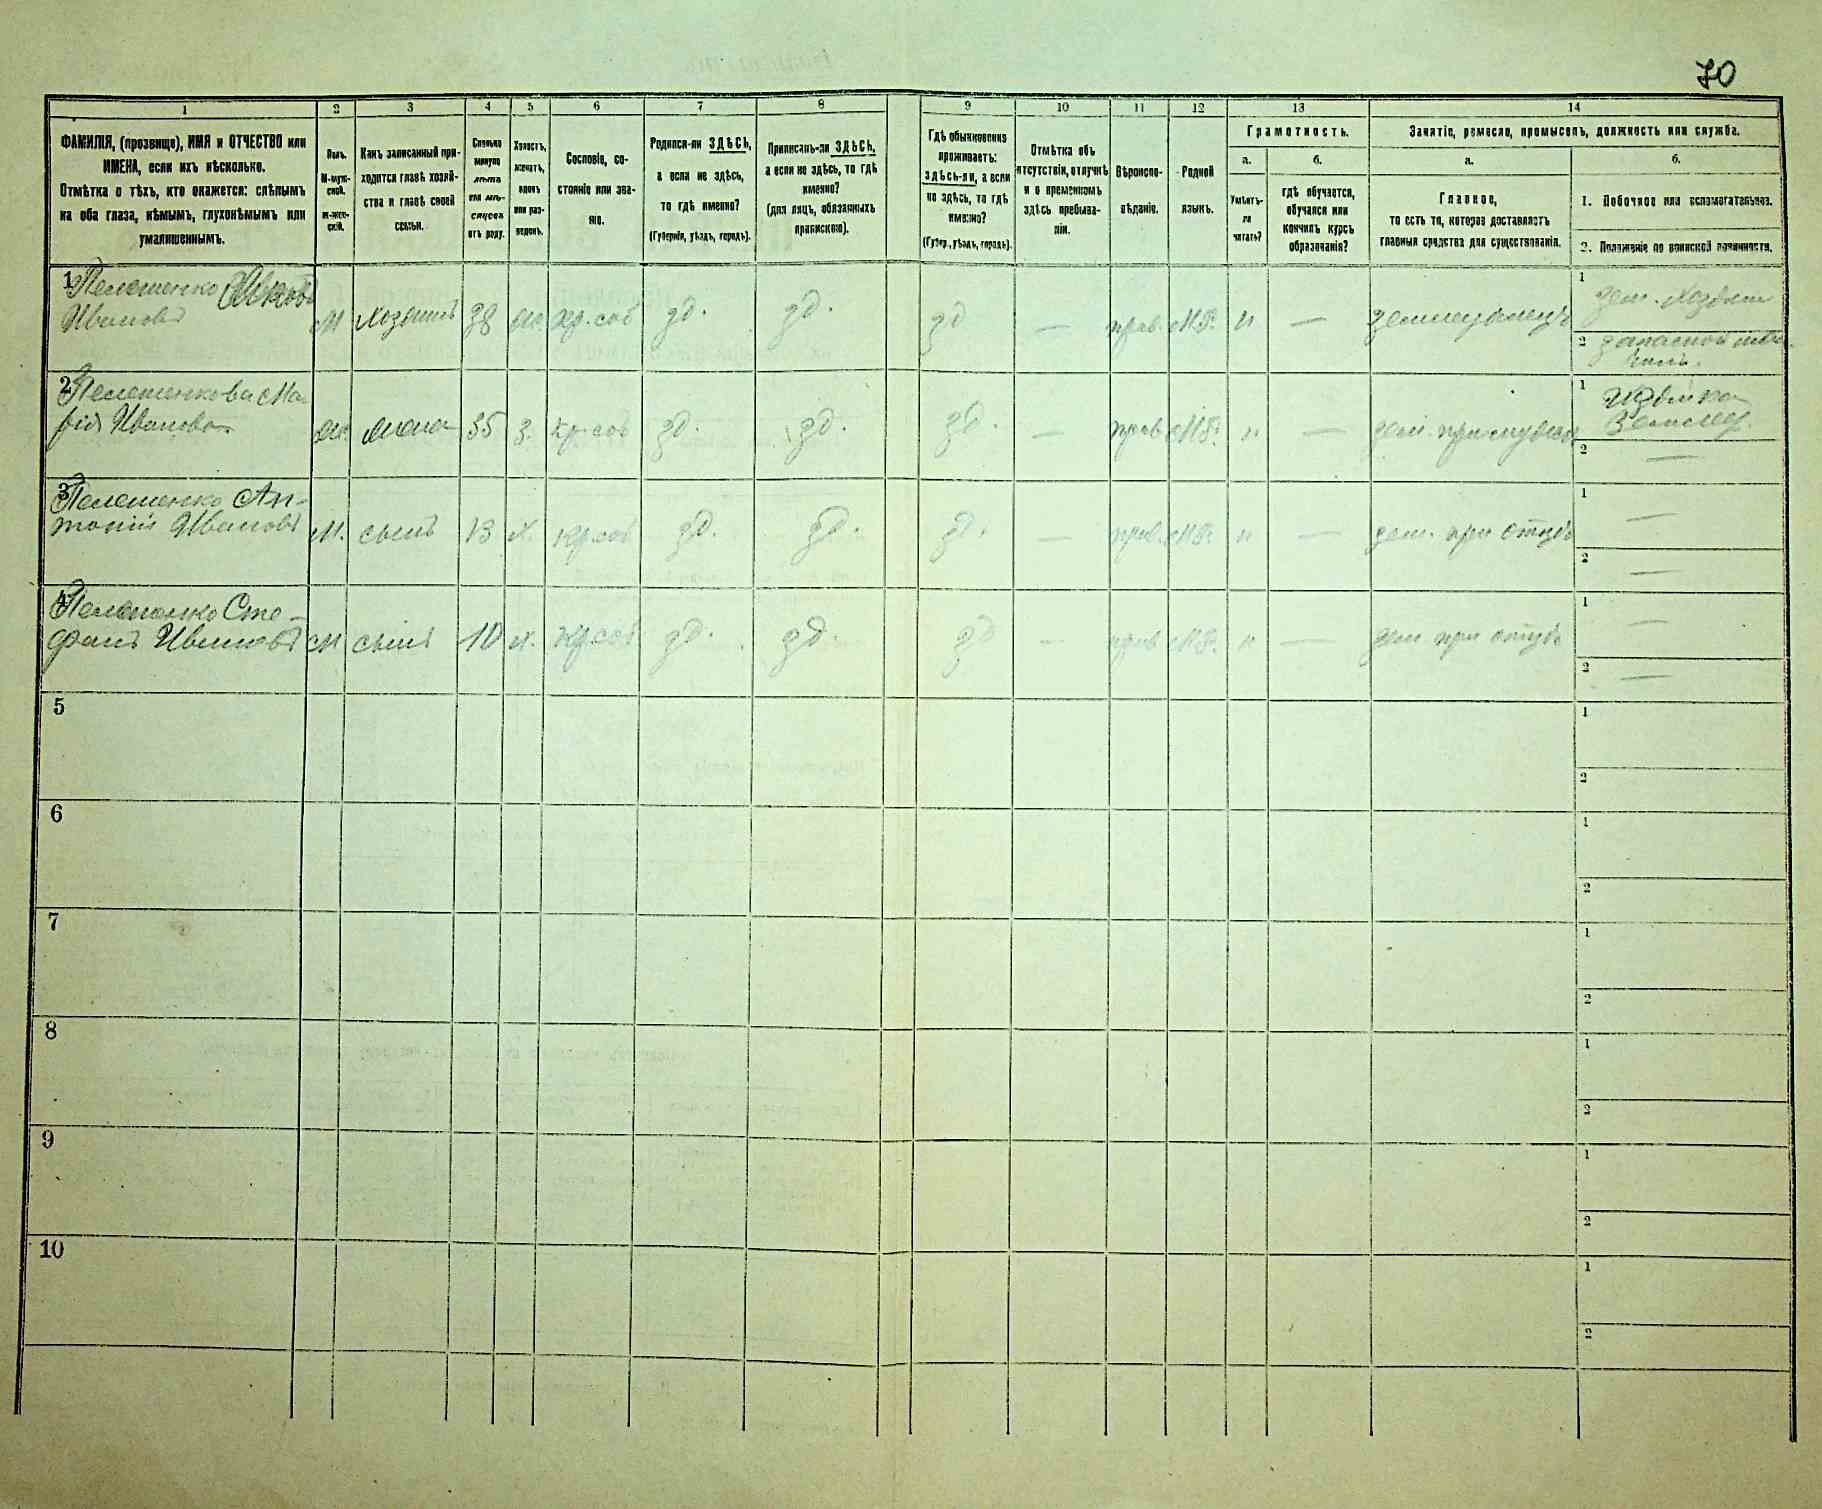 70
1
2
3
4
5
6
7
8
9
10
11
12
13
14
ФАМИЛІЯ, (прозвище), ИМЯ и ОТЧЕСТВО или
ИМЕНА, если ихъ нѣсколько.
Отмѣтка о тѣхъ, кто окажется: слѣпымъ
на оба глаза, нѣмымъ, глухонѣмымъ или
умалишеннымъ.
Полъ.
М-муж-
ской.
ж-жен-
скій.
Какъ записанный при-
ходится главѣ хозяй-
ства и главѣ своей
семьи.
Сколько
минуло
лѣтъ
или мѣ-
сяцевъ
отъ роду.
Холостъ,
женатъ,
вдовъ
или раз-
веденъ.
Сословіе, со-
стояніе или зва-
ніе.
Родился-ли ЗДѢСЬ,
а если не здѣсь,
то гдѣ именно?
(Губернія, уѣздъ, городъ).
Приписанъ-ли ЗДѢСЬ,
а если не здѣсь, то гдѣ
именно?
(для лицъ, обязанныхъ
припискою).
Гдѣ обыкновенно
проживаетъ:
здѣсь-ли, а если
не здѣсь, то гдѣ
именно?
(Губер., уѣздъ, городъ).
Отмѣтка объ
отсутствіи, отлучкѣ
и о временномъ
здѣсь пребыва-
ніи.
Вѣроиспо-
вѣданіе.
Родной
языкъ.
Грамотность.
а.
б.
Умѣетъ-
ли
читать?
гдѣ обучается,
обучался или
кончилъ курсъ
образованія?
Занятіе, ремесло, промыселъ, должность или служба.
а.
б.
Главное,
то есть то, которое доставляетъ
главныя средства для существованія.
1. Побочное или вспомогательное.
2. Положеніе по воинской повинности.
1
Пелешенко
Ивановъ
М Хозяинъ 38 же кр. соб зд. зд. зд — прав. М.Р. н —
1
зем.
2 запасной
2
Пелешенкова Ма-
рія Иванова
же. жена 35 з. кр. соб зд. зд. зд. — прав М.Р. н — зем. при мужѣ
1
2 —
3
Пелешенко Ан-
тоній Ивановъ
М. сынъ 13 х. кр. соб зд. зд. зд. — прав. М.Р. н — зем. при отцѣ
1 —
2 —
4
Пелешенко Сте-
фанъ Ивановъ
М сынъ 10 х. кр. соб зд. зд. зд — прав М.Р. н — зем при отцѣ
1 —
2 —
5
1
2
6
1
2
7
1
2
8
1
2
9
1
2
10
1
2